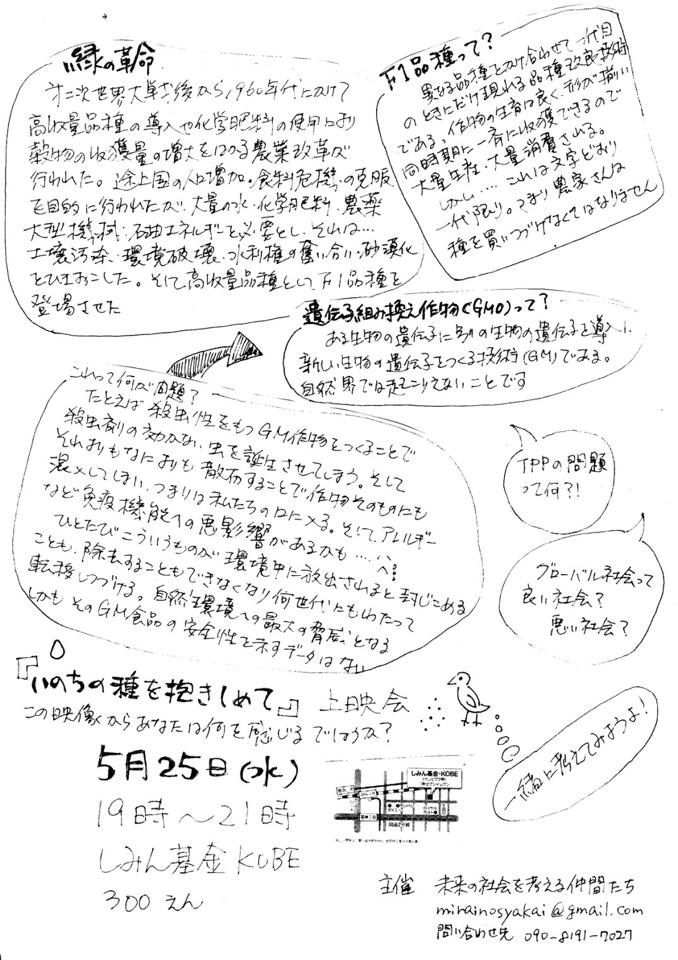 緑の革命
第二次世界大戦後から1960年代にかけて
高収量品種の導入や化学肥料の使用により
穀物の収穫量の増大をはかる農業改革が
行われた。途上国の人口増加、食料危機の克服
を目的に行われたが、大量の水・化学肥料・農薬
大型機械・石油エネルギーを必要とし、それは…
土壌汚染・環境破壊・水利権の奪い合い・砂漠化
をひきおこした。そして高収量品種としてF1品種を
登場させた
F1品種って?
異なる品種をかけ合わせて一代目
のときにだけ現れる品種改良技術
である。作物の生育は良く、形が揃い
同時期に一斉に収獲できるので
大量生産・大量消費される。
しかし…. これは文字どおり
一代限り。つまり農家さんは
種を買いつづけなくてはなりません
遺伝子組み換え作物(GMO)って?
ある生物の遺伝子に別の生物の遺伝子を導入し
新しい生物の遺伝子をつくる技術(GM)である。
自然界では起こりえないことです
これって何が問題?
たとえば 殺虫性をもつGM作物をつくることで
殺虫剤の効かない虫を誕生させてしまう。そして
それよりもなによりも 散布することで作物そのものにも
混入してしまい、つまりは私たちの口に入る。そして、アレルギー
など免疫機能への悪影響があるかも…..
ひとたびこういうものが環境中に放出されると封じこめる
ことも、除去することもできなくなり何世代にもわたって
転移しつづける。自然環境への最大の脅威となる
しかもそのGM食品の安全性を示すデータはない
TPPの問題
って何?!
グローバル社会って
良い社会?
悪い社会?
一緒に考えてみようよ!
『いのちの種を抱きしめて』上映会
この映像からあなたは何を感じるでしょうか?
5月25日(水)
19時〜21時
しみん基金KOBE
300えん
しみん基金・KOBE
主催 未来の社会を考える仲間たち
mirainosyakai@gmail.com
問い合わせ先 090-8191-7027